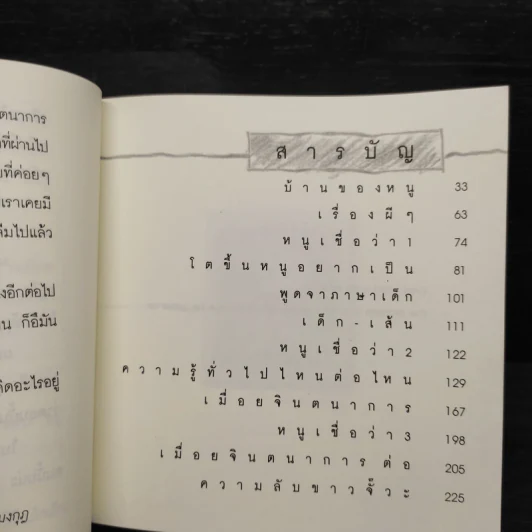 ที่ผ่านไป
ที่ค่อยๆ
เราเคยมี
ลืมไปแล้ว
งอีกต่อไป
ก็อืมัน
คิดอะไรอยู่
สารบัญ
บ้านของหนู 33
เรื่องผีๆ 63
หนูเชื่อว่า1 74
โตขึ้นหนูอยากเป็น 81
พูดจาภาษาเด็ก 101
เด็ก-เส้น 111
หนูเชื่อว่า2 122
ความรู้ทั่วไปไหนต่อไหน 129
เมื่อยจินตนาการ 167
หนูเชื่อว่า3 198
เมื่อยจินตนาการ ต่อ 205
ความลับขาวจั๊วะ 225